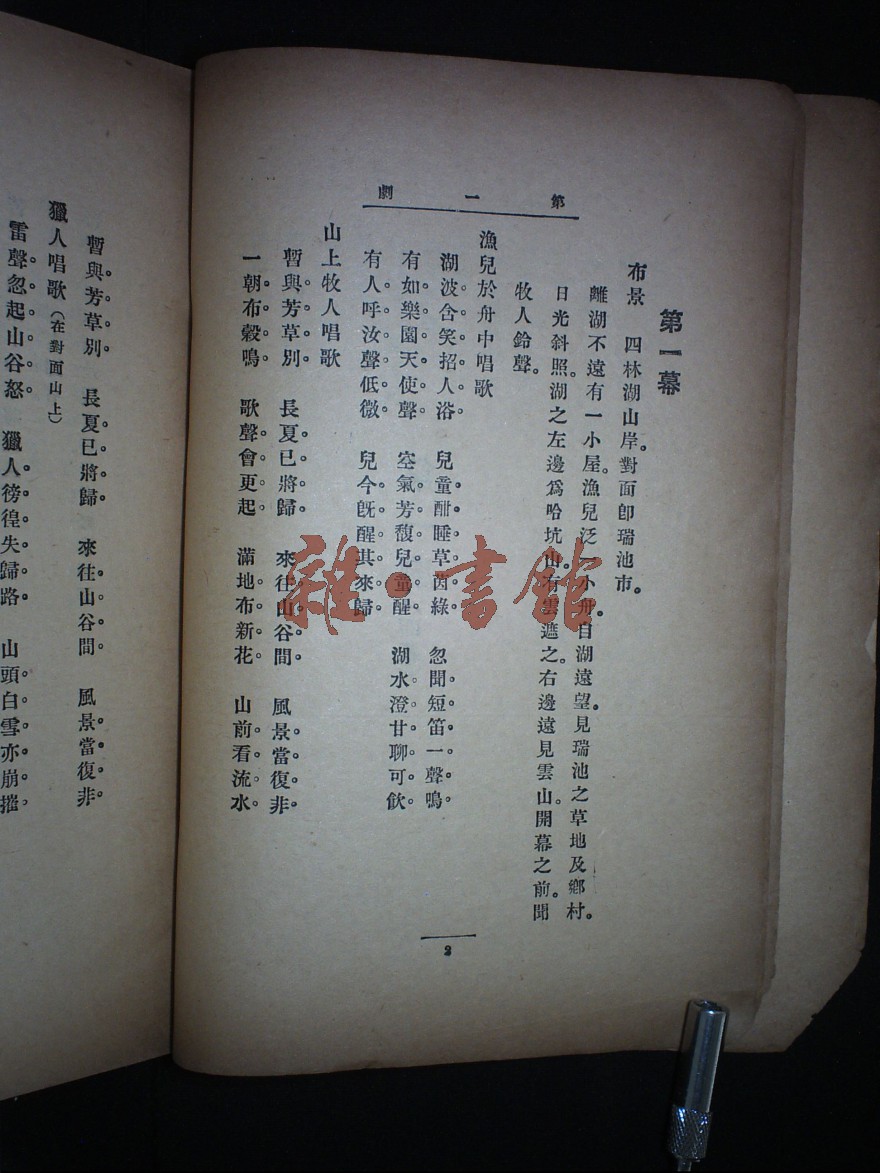 第一劇
第一幕
布景　四林湖山岸。對面卽瑞池市。
離湖不遠有一小屋。漁兒泛一小舟。自湖遠望。見瑞池之草地及鄉村。
日光斜照。湖之左邊爲哈坑山。有雲遮之。右邊遠見雲山。開幕之前。聞
牧人鈴聲。
漁兒於舟中唱歌
湖波含笑招人浴。　兒童酣睡草茵綠。　忽聞短笛一聲鳴。
有如樂園天使聲。　空氣芳馥兒童醒。　湖水澄甘聊可飲。
有人呼汝聲低微。　兒今旣醒其來歸。
山上牧人唱歌
暫與芳草別。　長夏已將歸。　來往山谷間。　風景當復非。
一朝布穀鳴。　歌聲會更起。　滿地布新花。　山前看流水。
2
暫與芳草別。　長夏已將歸。　來往山谷間。　風景當復非。
獵人唱歌（在對面山上）
雷聲忽起山谷怒。　獵人徬徨失歸路。　山頭白雪亦崩摧
雜·書館